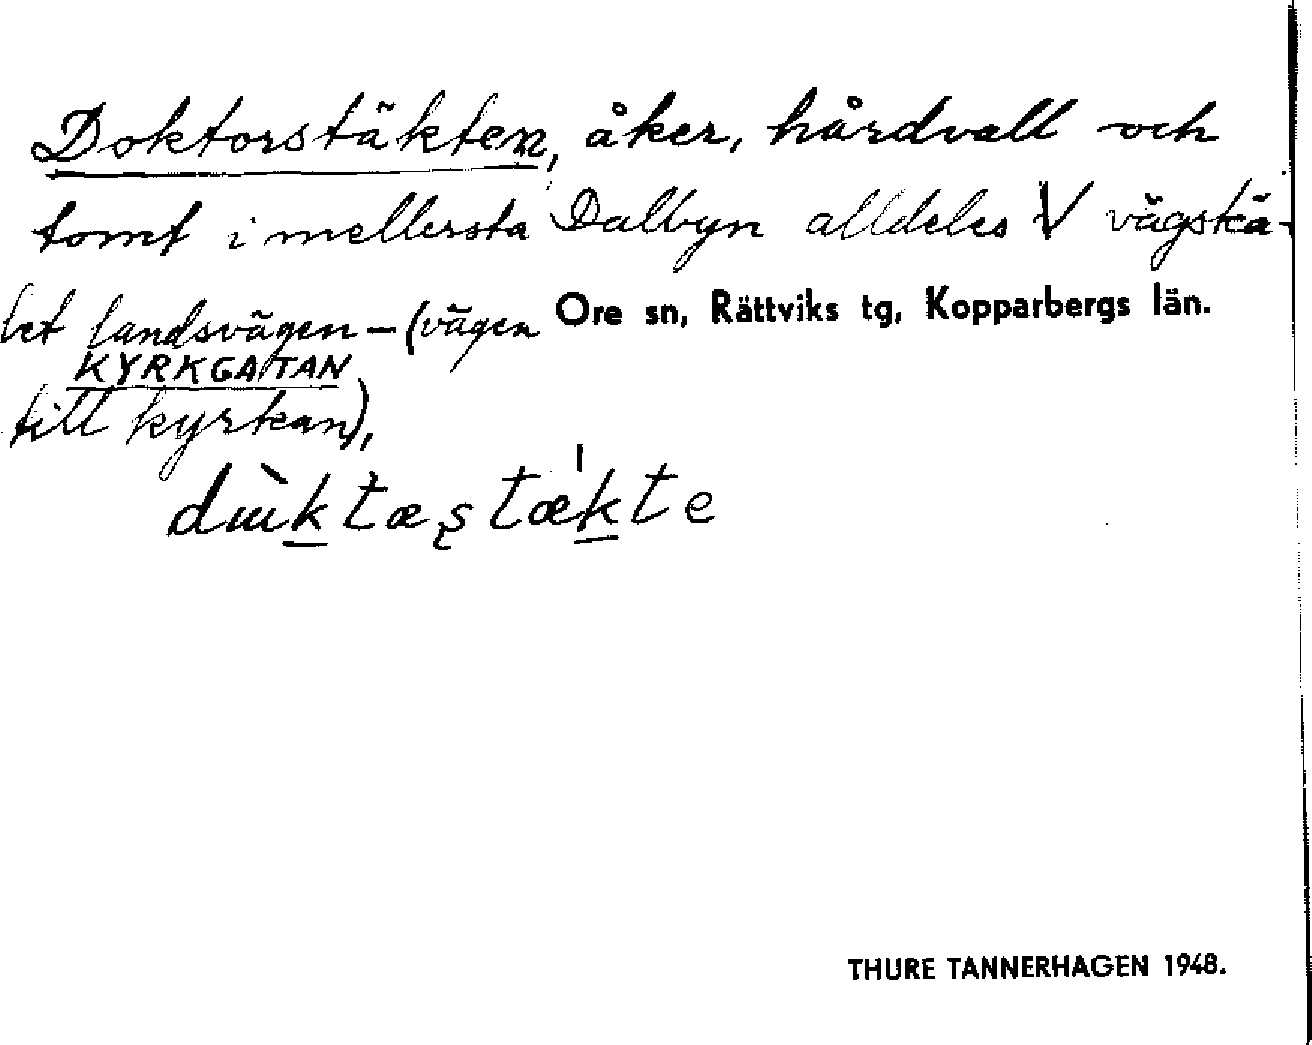 Doktorstäkten, åker, hårdvall och
tomt i mellersta Dalbyn alldeles V vägskä-
let landsvägen – (vägen
Ore sn, Rättviks tg, Kopparbergs län.
KYRKGATAN
till kyrkan),
THURE TANNERHAGEN 1948.